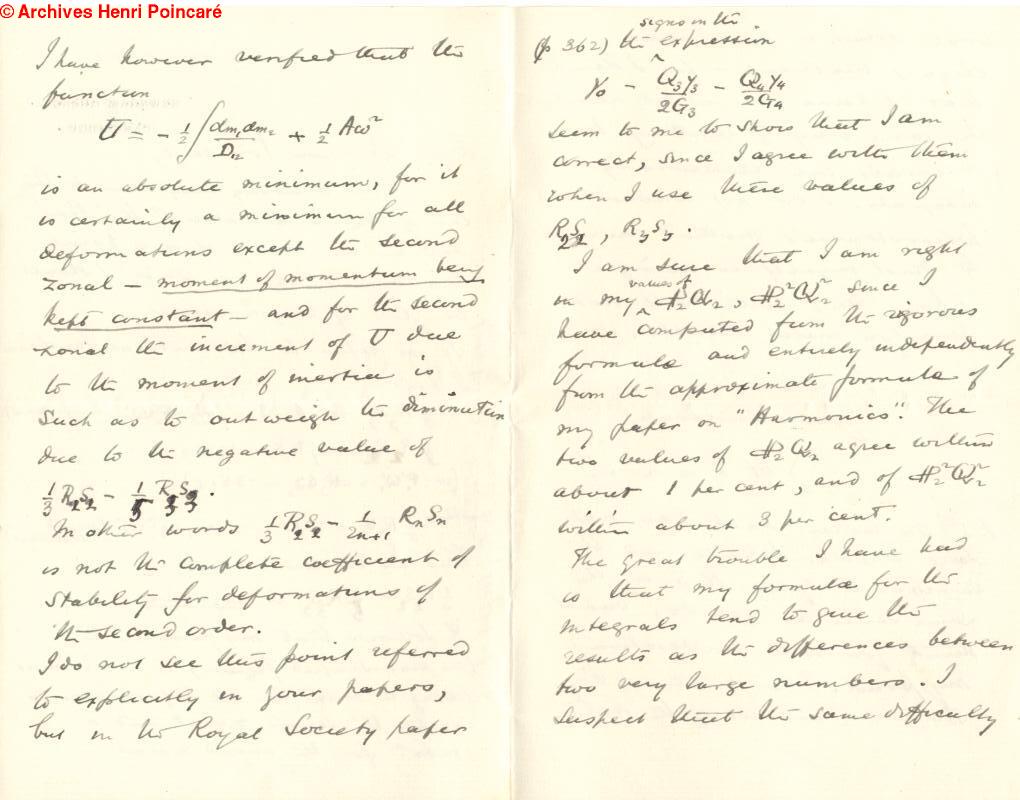 © Archives Henri Poincaré
I have however verified that the
function
U = - 1/2 ∫ dm₁dm₂/D₁₂ + 1/2 Aω²
is an absolute minimum, for it
is certainly a minimum for all
deformations except the second
zonal – moment of momentum being
kept constant – and for the second
zonal the increment of U due
to the moment of inertia is
such as to outweigh the diminution
due to the negative value of
1/3 R₂S₂ - 1/5 R₃S₃.
In other words 1/3 R₂S₂ - 1/2n+1 RₙSₙ
is not the complete coefficient of
stability for deformations of
the second order.
I do not see this point referred
to explicitly in your papers,
but in the Royal Society paper
signs in the
(p 362) the ^ expression
γ₀ - Q₃γ₃/2G₃ - Q₄γ₄/2G₄
seem to me to show that I am
correct, since I agree with them
when I use these values of
R₂S₂, R₃S₃.
I am sure that I am right
values of
in my ^ 𝔓₂Q₂, 𝔓₂²Q₂² since I
have computed from the rigorous
formulæ and entirely independently
from the approximate formulæ of
my paper on "Harmonics". The
two values of 𝔓₂Q₂ agree within
about 1 per cent, and of 𝔓₂²Q₂²
within about 3 per cent.
The great trouble I have had
is that my formulæ for the
integrals tend to give the
results as the differences between
two very large numbers. I
suspect that the same difficulty